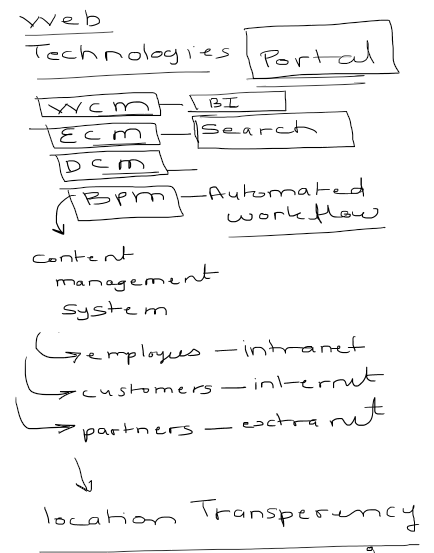 Web
Technologies Portal
WCM — BI
ECM — Search
DCM —
BPM — Automated
workflow
content
management
system
employees — intranet
customers — internut
partners — exctranut
location Transperency